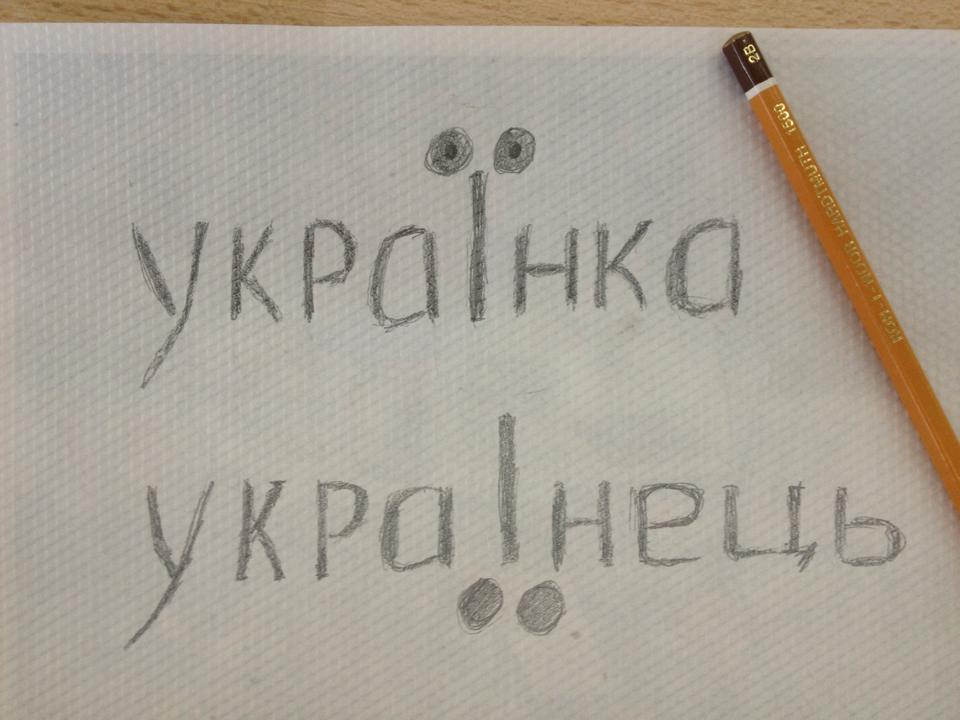 українка
українець
2B
KOH-I-NOOR HARDTMUTH 1500